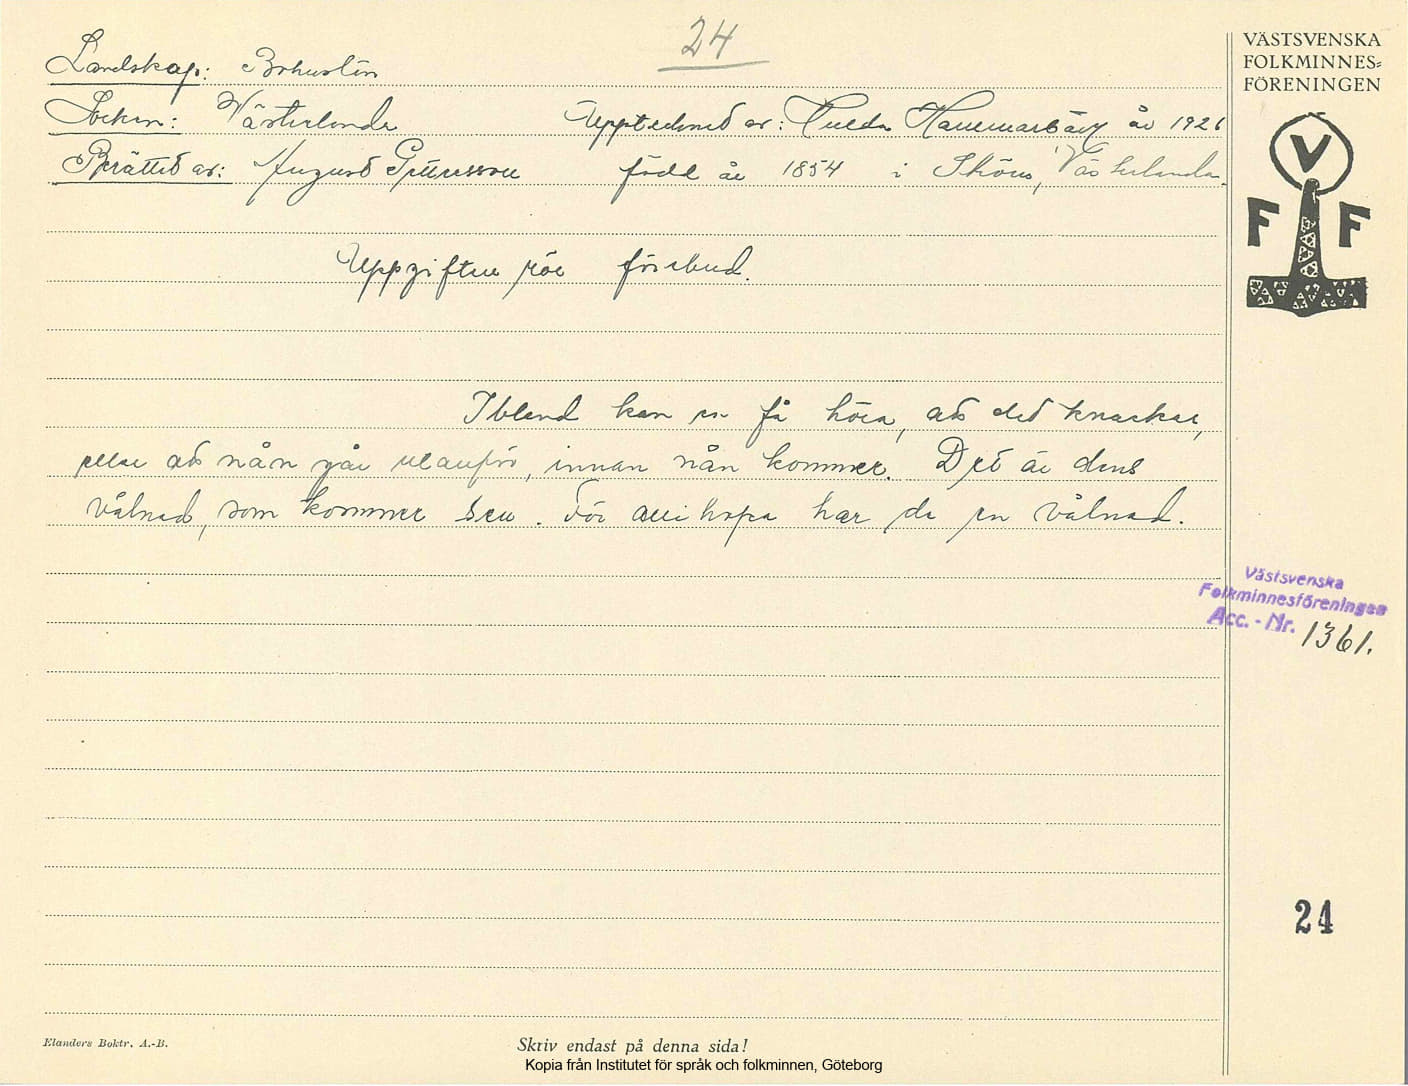 24
Landskap: Bohuslän
Socken: Västerlanda Upptecknat av: Hulda Hammarbäck år 1926
Berättat av: August Göransson född år 1854 i Sköns, Västerlanda.
Uppgifter rör förebud.
Ibland kan en få höra, att det knackar,
eller att nån går utanför, innan nån kommer. Det är dens
vålnad, som kommer den. För allihopa har de en vålnad.
VÄSTSVENSKA
FOLKMINNES=
FÖRENINGEN
V
F F
Västsvenska
Folkminnesföreningen
Acc. - Nr. 1361.
24
Elanders Boktr. A.-B.
Skriv endast på denna sida!
Kopia från Institutet för språk och folkminnen, Göteborg